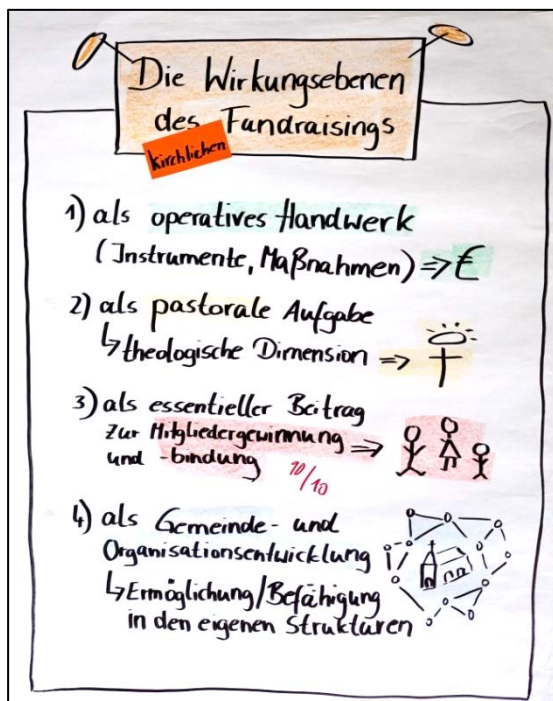 Die Wirkungsebenen
des Fundraisings
kirchlichen
1) als operatives Handwerk
(Instrumente, Maßnahmen) ⇒ €
2) als pastorale Aufgabe
↳ theologische Dimension ⇒
3) als essentieller Beitrag
zur Mitgliedergewinnung ⇒
und -bindung 10/10
4) als Gemeinde- und
Organisationsentwicklung
↳ Ermöglichung/Befähigung
in den eigenen Strukturen